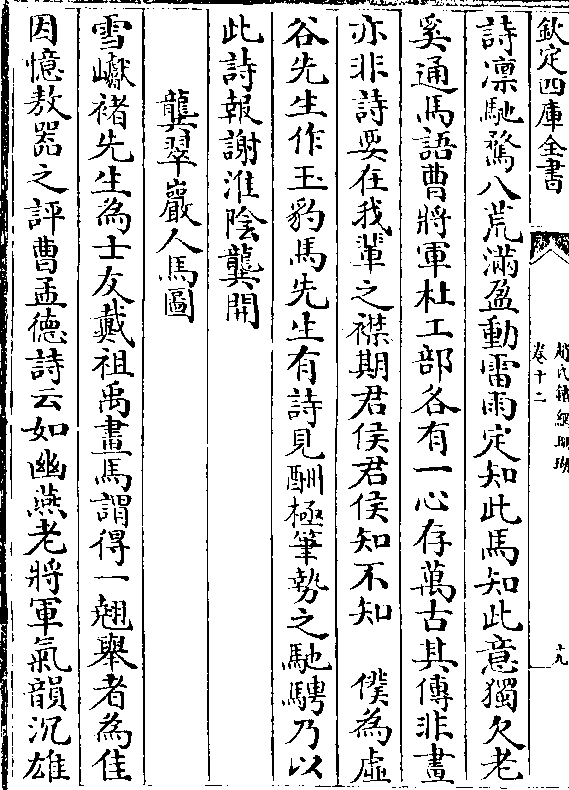 欽定四庫全書
趙氏鐵網珊瑚
卷十二
十九
詩凛馳騖八荒滿盈動雷雨定知此馬知此意獨欠老
奚通馬語曹將軍杜工部各有一心存萬古其傳非畫
亦非詩要在我輩之襟期君侯君侯知不知 僕為虛
谷先生作玉豹馬先生有詩見酬極筆勢之馳騁乃以
此詩報謝淮陰龔開
龔翠巖人馬圖
雪巘褚先生為士友戴祖禹畫馬謂得一翹舉者為佳
因憶敖器之評曹孟德詩云如幽燕老將軍氣韻沉雄